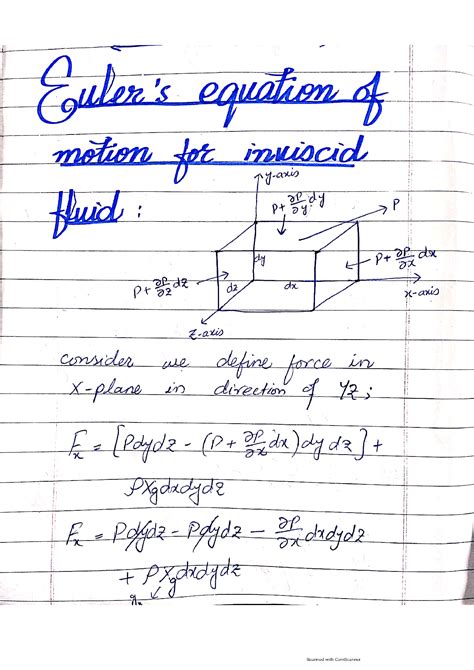 Euler's equation of
motion for inviscid
fluid :
y-axis
P+ ∂P/∂y dy
P
P+ ∂P/∂x dx
dy
P+ ∂P/∂z dz
dz
dx
x-axis
z-axis
consider we define force in
x-plane in direction of YZ;
Fx = [Pdydz - (P + ∂P/∂x dx) dy dz] +
ρXg dxdydz
Fx = Pdydz - Pdydz - ∂P/∂x dxdydz
+ ρXg dxdydz
gx
Scanned with CamScanner